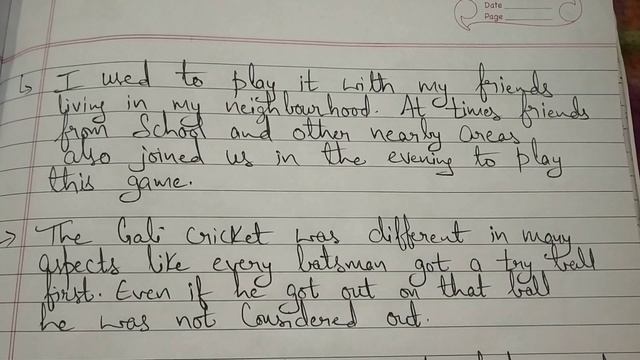 Date
Page
↳ I used to play it with my friends
living in my neighbourhood. At times friends
from School and other nearly areas
also joined us in the evening to play
this game.
→ The Gali cricket was different in many
aspects like every batsman got a try ball
first. Even if he got out on that ball
he was not Considered out.